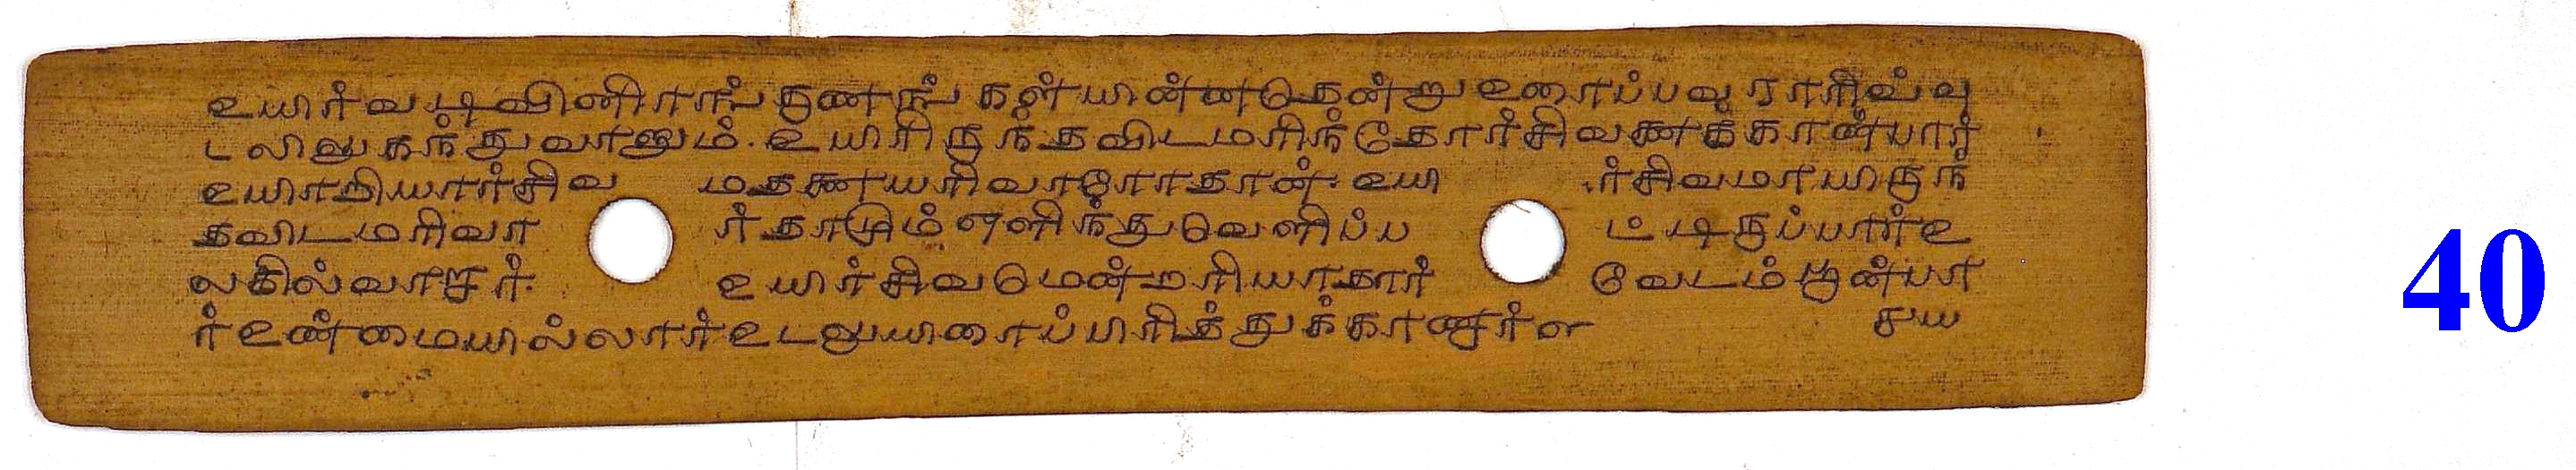 உயிர்வடிவினிரங் குணங் கள் யின்னதென்று உரைப்பவ ராரிவ்வு
டலிலுகந்துவாளும். உயிரிருந்தவிடமறிந்தோர்சிவனைக்காண்பார்
உயிரறியார்சிவ மதனையறிவாரோதான். உயி ர்சிவமாயிருந்
தவிடமறிவா ர்தாமும் எளிந்துவெளிப்ப ட்டிருப்பார்உ
லகில்வாழ்ர். உயிர்சிவமென்றறியாதார் வேடம்பூண்பா
ர்உண்மையில்லார்உடலுயிரைப்பிரித்துக்காணார்எ சுய
40